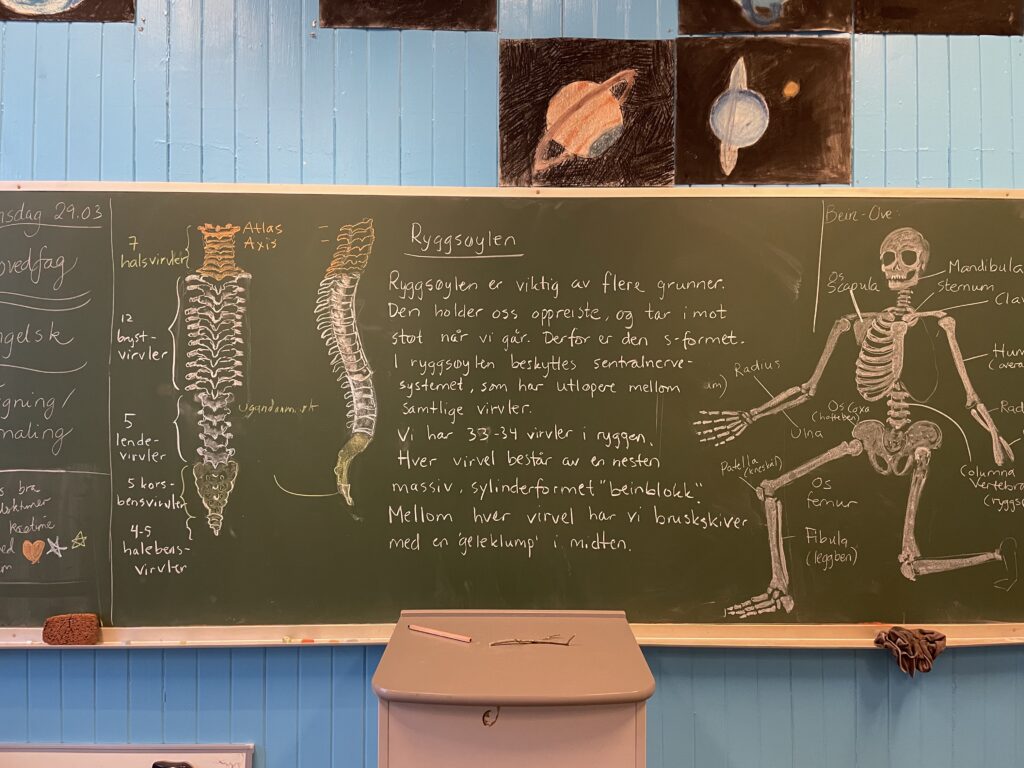 nsdag 29.03
ovedfag
ngelsk
gning/
maling
s bra
Kaotime
ed
7
halsvirvler
Atlas
Axis
12
bryst-
virvler
5
lende-
virvler
5 kors-
bensvirvler
4-5
halebens-
virvler
Ryggsøylen
Ryggsøylen er viktig av flere grunner.
Den holder oss oppreiste, og tar i mot
støt når vi går. Derfor er den s-formet.
I ryggsøylen beskyttes sentralnerve-
systemet, som har utløpere mellom
samtlige virvler.
Vi har 33-34 virvler i ryggen.
Hver virvel består av en nesten
massiv, sylinderformet "beinblokk".
Mellom hver virvel har vi bruskskiver
med en 'geleklump' i midten.
Bein-Ove:
Os
scapula
Mandibula
sternum
Clav
Hum
(overa
Radius
am)
Ulna
Os Coxa
(hofteben)
Rad
Patella
(kneskål)
Os
femur
Columna
Vertebra
(ryggsø
Fibula
(leggben)